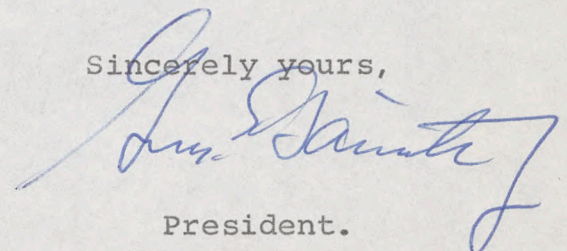 Sincerely yours,
President.